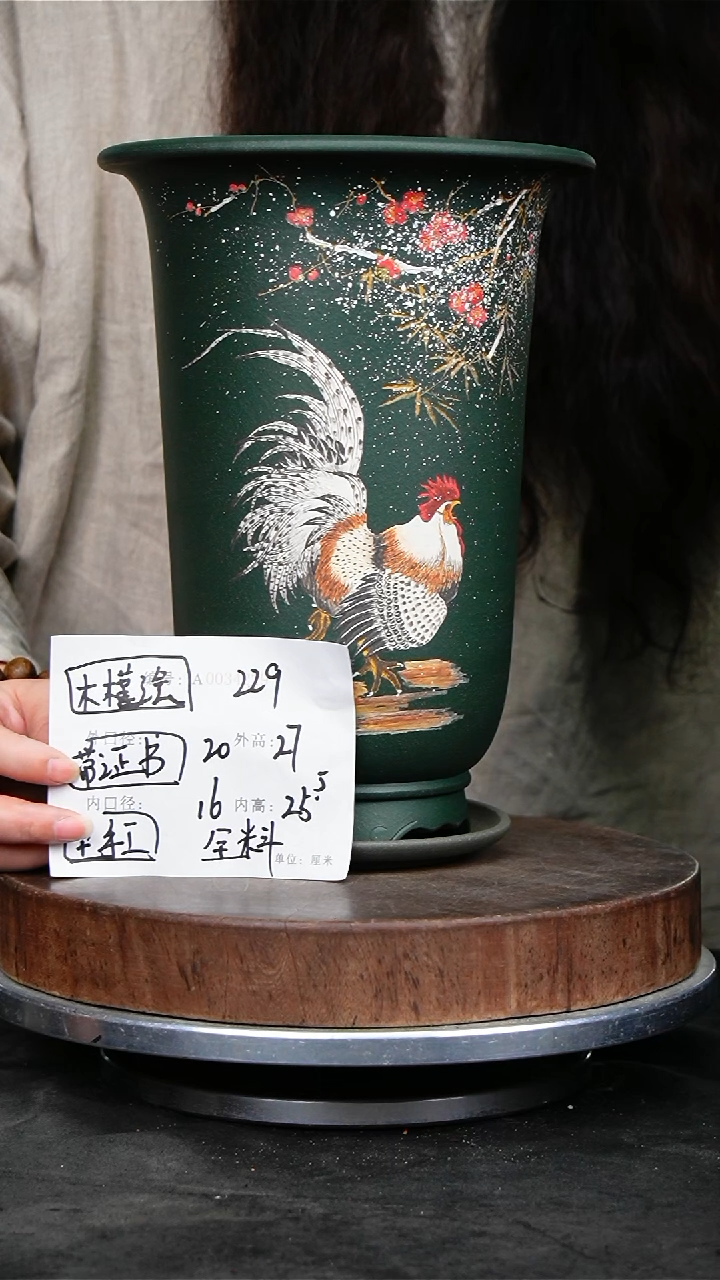 木槿绘 编号: A003 229
带证书 外口径: 20 外高: 27
内口径: 16 内高: 25.5
手工 全料 单位: 厘米